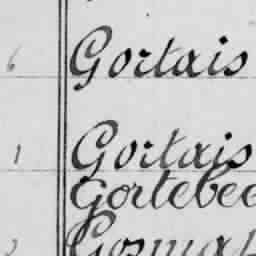 6 Gortais
1 Gortais
Gortebee